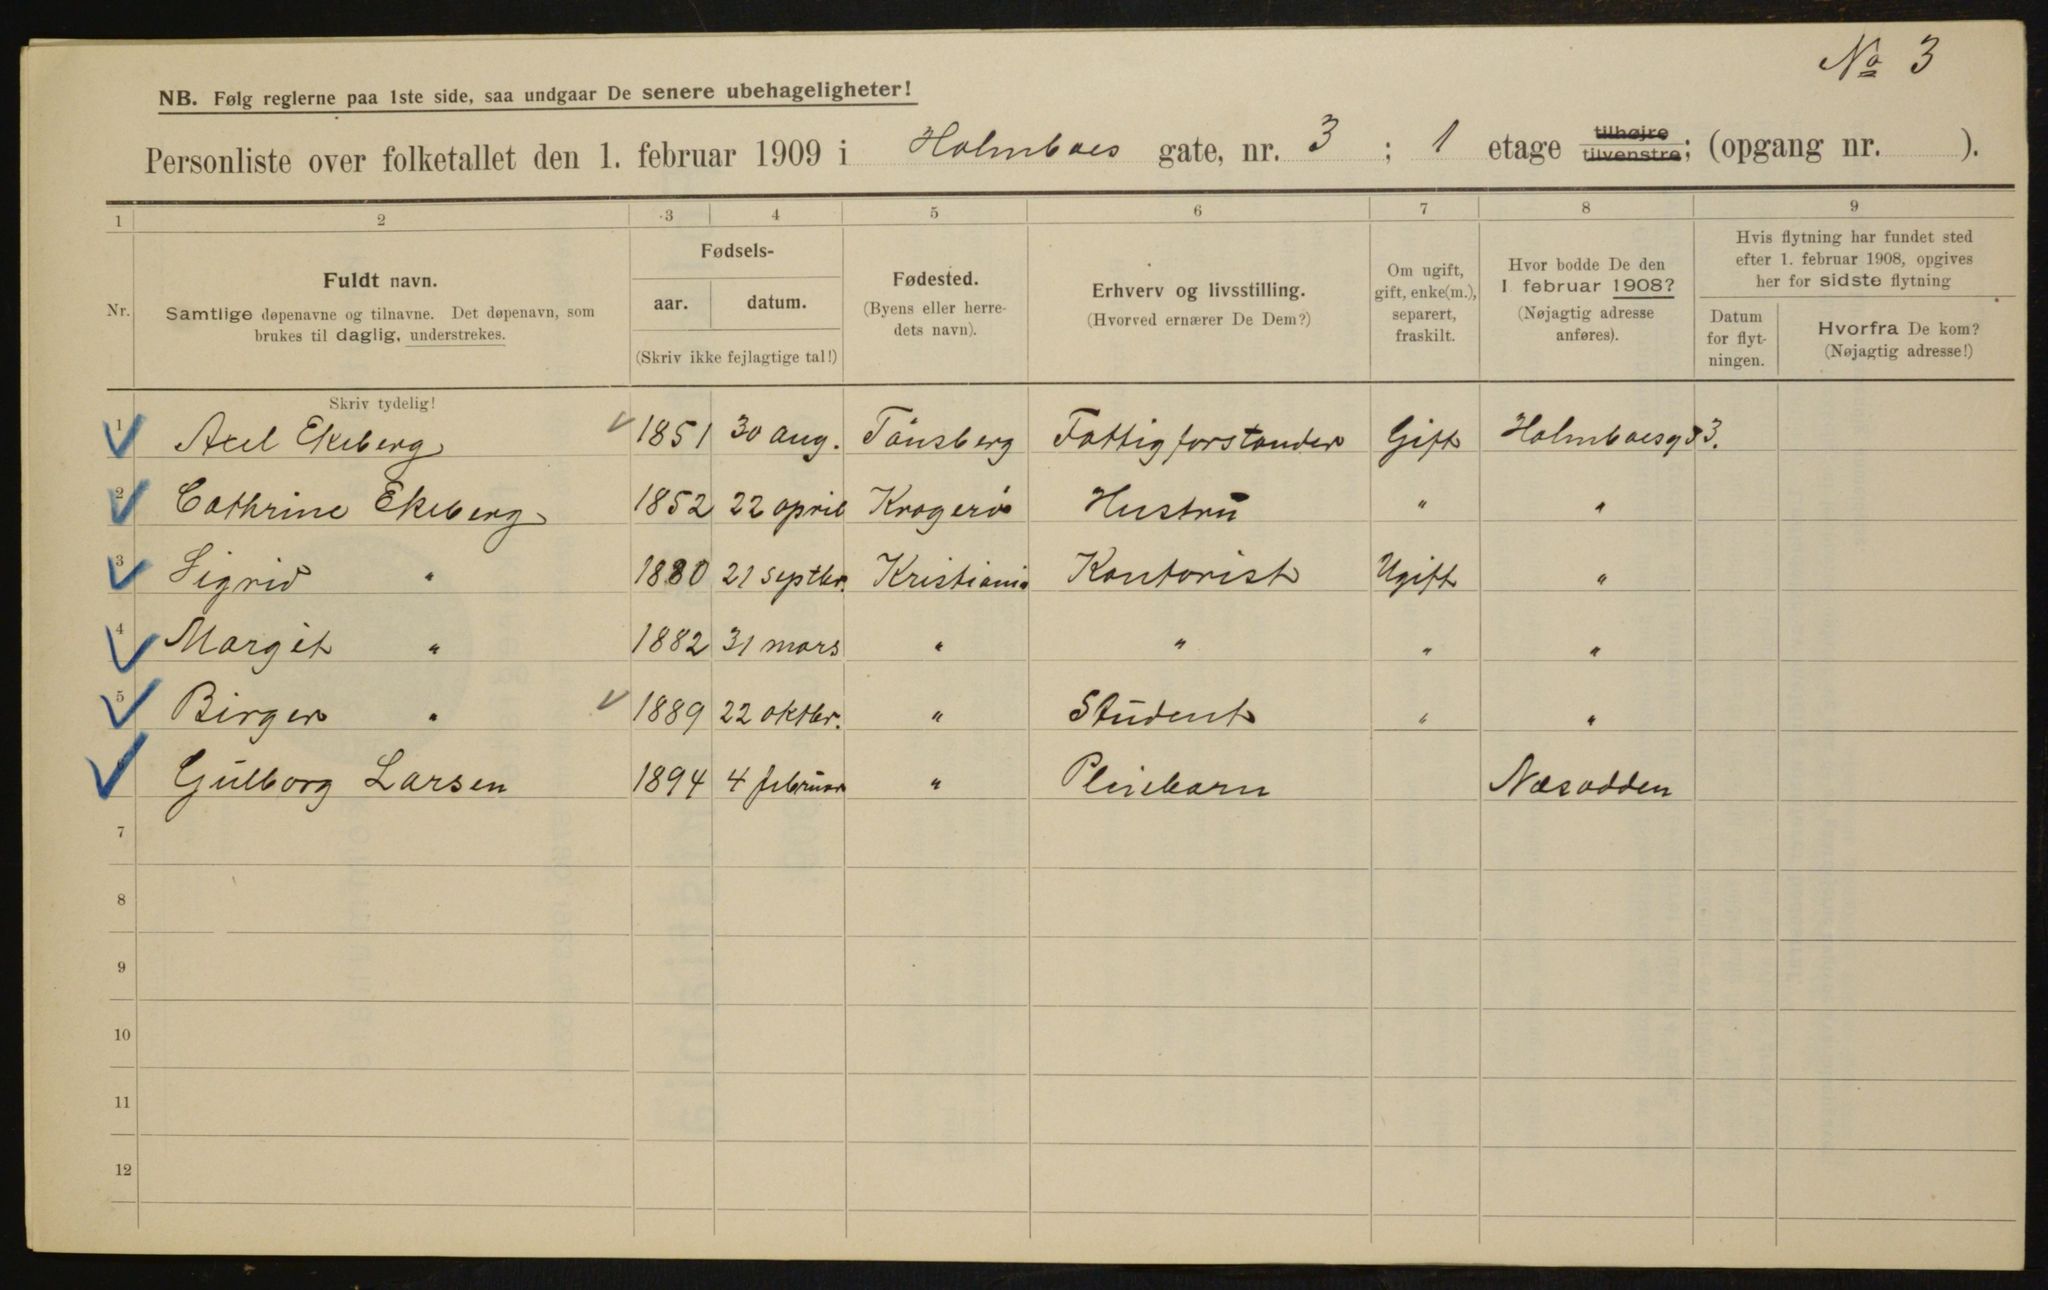 No 3
NB. Følg reglerne paa 1ste side, saa undgaar De senere ubehageligheter!
Personliste over folketallet den 1. februar 1909 i Holmboes gate, nr. 3 ; 1 etage tilhøjre tilvenstre; (opgang nr. ).
1 2 3 4 5 6 7 8 9
Nr.
Fuldt navn.
Samtlige døpenavne og tilnavne. Det døpenavn, som
brukes til daglig, understrekes.
Fødsels-
aar. datum.
(Skriv ikke fejlagtige tal!)
Fødested.
(Byens eller herre-
dets navn).
Erhverv og livsstilling.
(Hvorved ernærer De Dem?)
Om ugift,
gift, enke(m.),
separert,
fraskilt.
Hvor bodde De den
1 februar 1908?
(Nøjagtig adresse
anføres).
Hvis flytning har fundet sted
efter 1. februar 1908, opgives
her for sidste flytning
Datum
for flyt-
ningen.
Hvorfra De kom?
(Nøjagtig adresse!)
Skriv tydelig!
1 Axel Ekeberg 1851 30 aug. Tønsberg Fattigforstander Gift Holmboesg 3.
2 Cathrine Ekeberg 1852 22 april Kragerø Hustru " "
3 Sigrid " 1880 21 septbr. Kristiania Kontorist Ugift "
4 Margit " 1882 31 mars " " " "
5 Birger " 1889 22 oktbr. " Student " "
Gulborg Larsen 1894 4 februar " Pleiebarn Næsodden
7
8
9
10
11
12